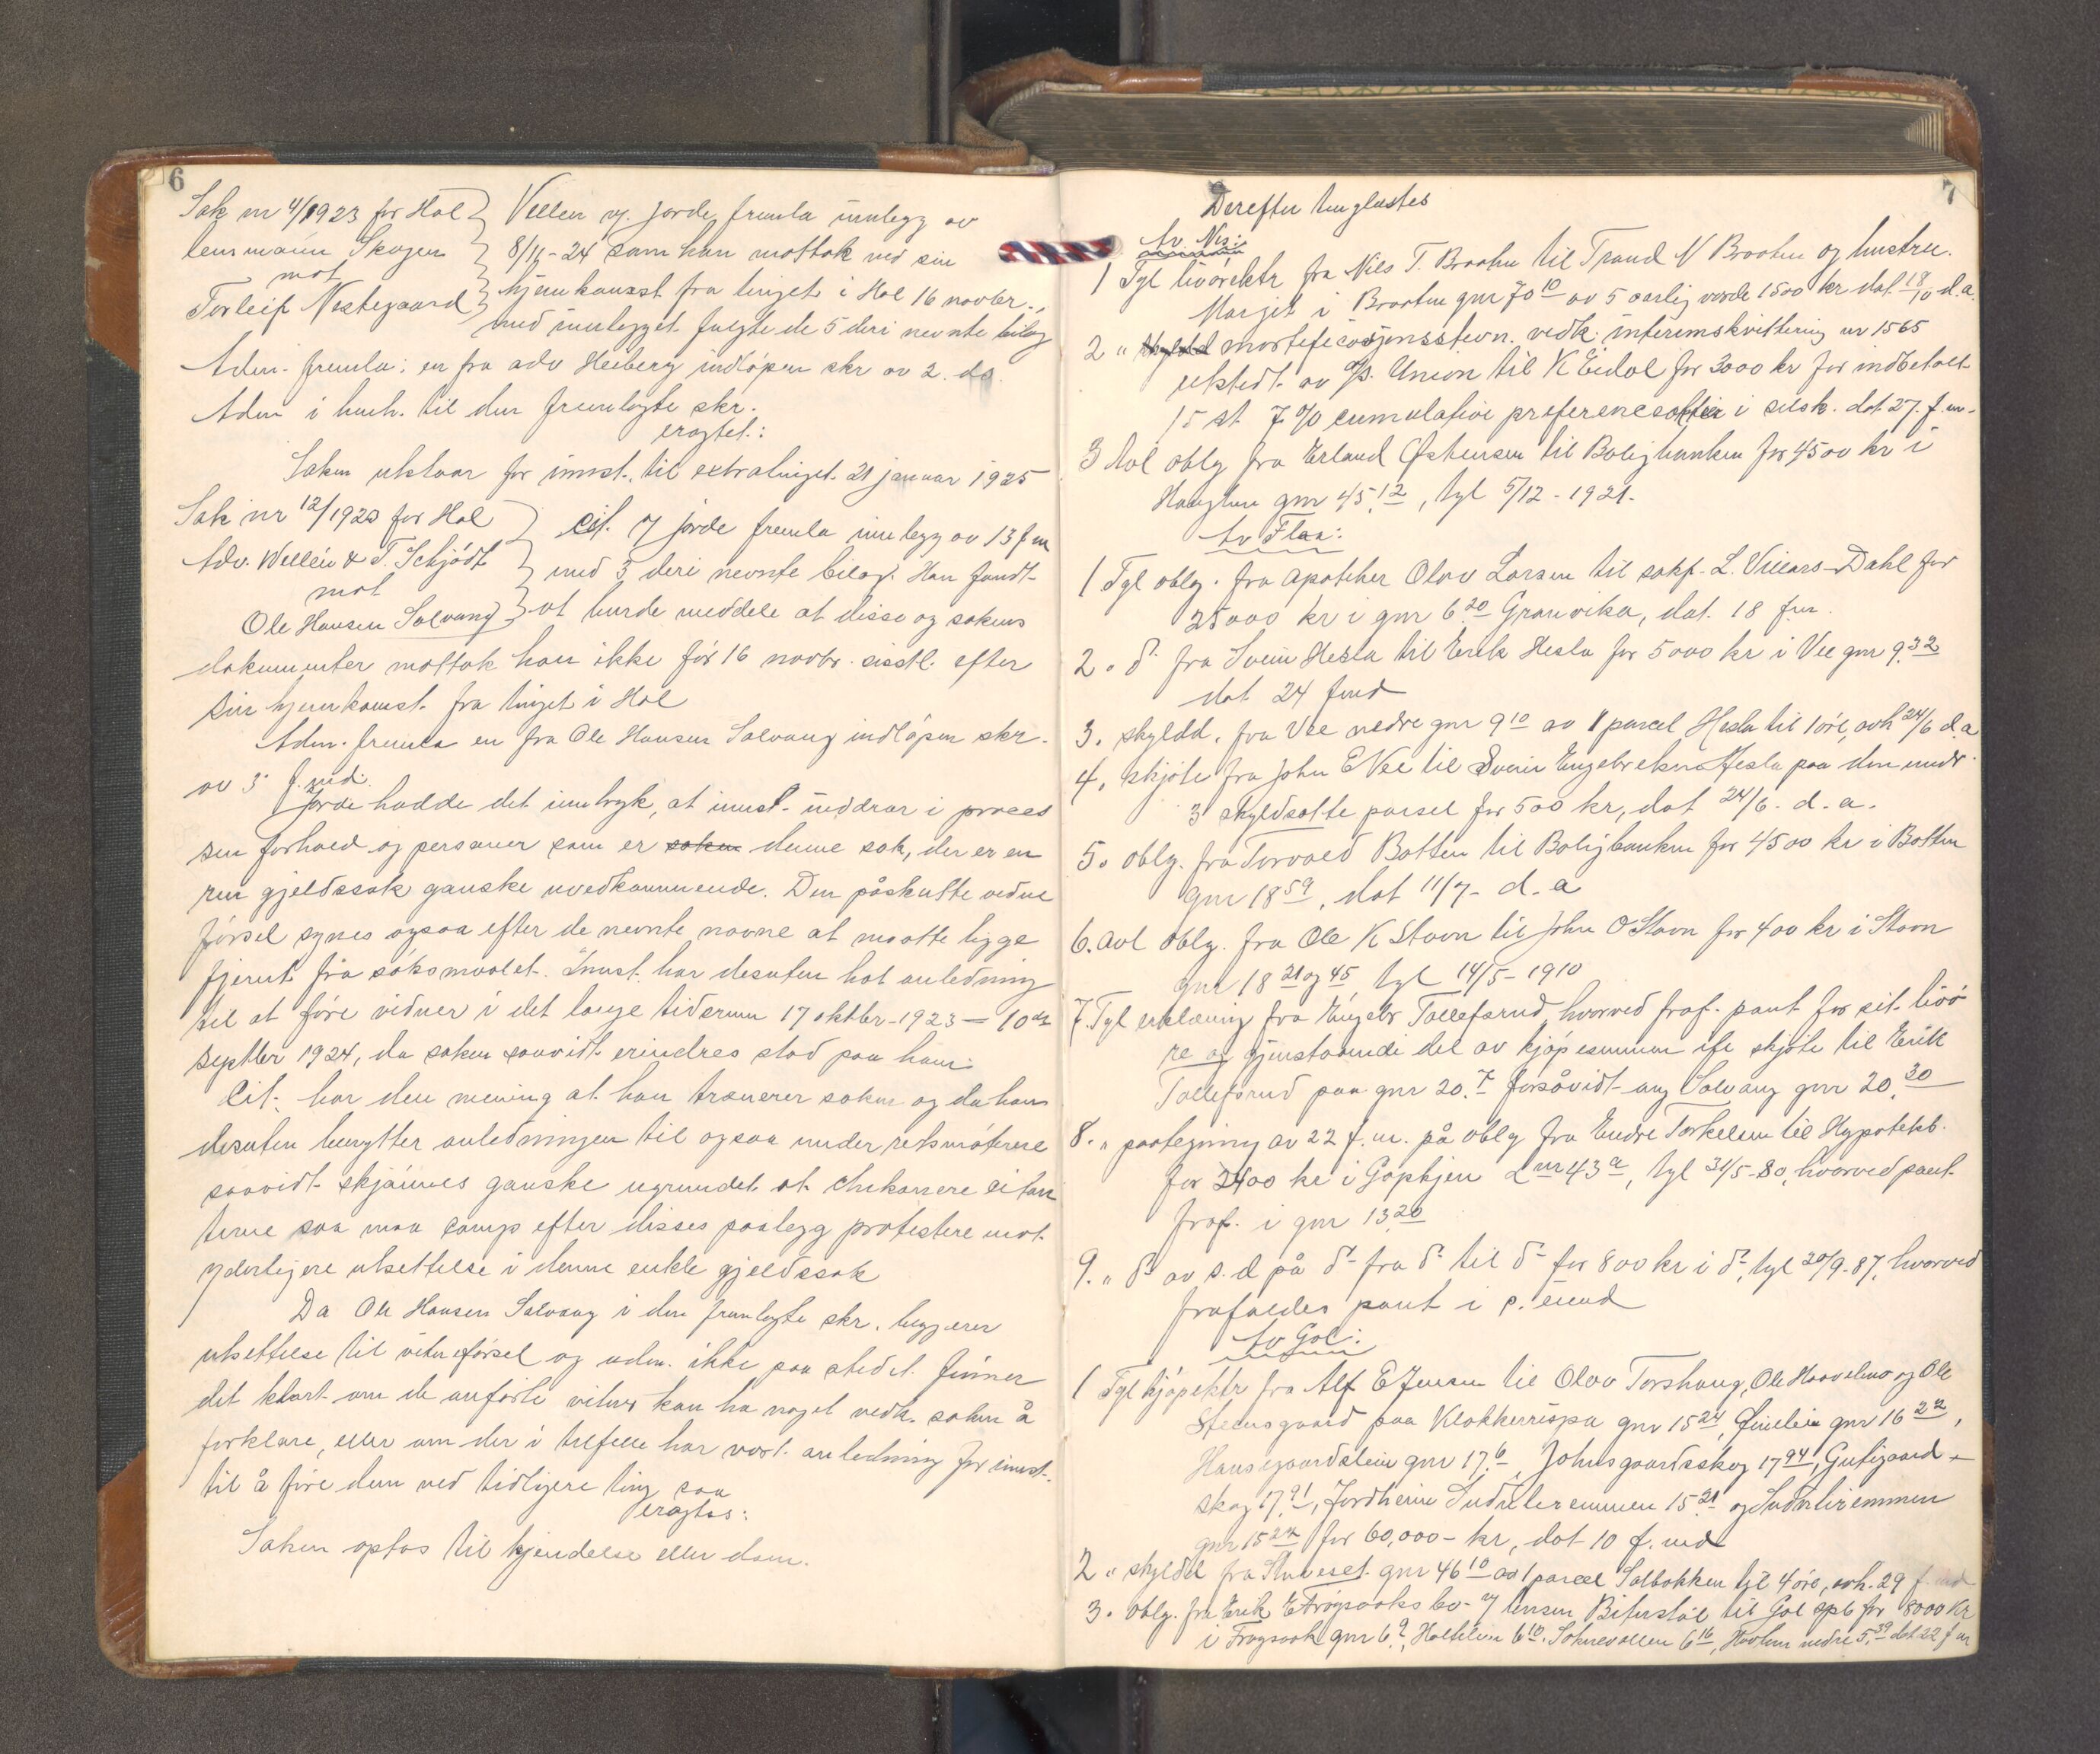 6
Sak nr 4/1923 for Hol
lensmann Skogen
mot
Torleif Nestegaard
Vellen og. Jorde fremla innlegg av
8/11-24 som han mottok ved sin
hjemkomst fra tinget i Hol 16 novbr.
med innlegget fulgte de 5 deri nevnte bilag
Adm. fremla: en fra adv Heiberg indløpen skr av 2. ds.
Adm i henh. til den fremlagte skr.
eragtet:
Saken utstaar for innst. til extratinget 21 januar 1925
Sak nr 12/1923 for Hol
Adv. Wellén & T. Schjødt
mot
Ole Hansen Solvang
Cit. v/ Jorde fremla innlegg av 13 f m
med 3 deri nevnte bilag. Han fandt
at burde meddele at disse og sakens
dokumenter mottok han ikke før 16 novbr. sisstl. efter
sin hjemkomst fra tinget i Hol
Adm. fremla en fra Ole Hansen Solvang indløpen skr.
av 3 f. md.
Jorde hadde det inntryk, at innst. inddrar i proces
sen forhold og personer som er saken denne sak, der er en
ren gjeldssak ganske uvedkommende. Den påskutte vidne
førsel synes ogsaa efter de nevnte navne at maatte ligge
fjernt fra søksmaalet. Innst. har desuten hat anledning
til at føre vidner i det lange tidsrum 17 oktbr-1923 – 10de
septbr 1924, da saken saavidt erindres stod paa ham.
Cit. har den mening at han trænerer saken og da han
desuten benytter anledningen til ogsaa under retsmøterne
saavidt skjønnes ganske ugrundet at chikanere citan
terne saa maa comp efter disses paalegg protestere mot
yderligere utsettelse i denne enkle gjeldssak
Da Ole Hansen Solvang i den fremlagte skr. begjærer
utsettelse til vitneførsel og adm. ikke paa stedet finner
det klart om de anførte vitner kan ha noget vedk. saken å
forklare, eller om der i tilfelle har vært anledning for innst.
til å føre dem ved tidligere ting saa
eragtes:
Saken optas til kjendelse eller dom.
7
Derefter tinglæstes
Av Nes:
1 Tgl livørektr fra Nils T. Braaten til Trond N Braaten og hustru
Margit i Braaten gnr 70 10 av 5 aarlig verdi 1500 kr dat. 18/10 d.a.
2 " skyldd mortifica sjonsstevn. vedk. interimskvittering nr 1565
utstedt av A/S. Union til K Eidal for 3000 kr for indbetalt
15 st 7 % cumulative preferenceaktier i selsk. dat 27. f.m.
3 Avl oblg fra Erland Østensen til Boligbanken for 4500 kr i
Haugtun gnr 45.12, tgl 5/12-1921.
Av Flaa:
1 Tgl oblg. fra apoteker Olav Larsen til sakf. L. Villars-Dahl for
25000 kr i gnr 6.20 Granvika, dat. 18 f.m.
2 " d fra Svein Hesla til Erik Hesla for 5000 kr i Vee gnr 9.32
dat 24 f md
3. skyldd. fra Vee nedre gnr 9 10 av 1 parcel Hesla til 1 øre, avh 24/6 d.a
4. skjøte fra John E Vee til Svein Engebretsen Hesla paa den under
3 skyldsatte parsel for 500 kr, dat 24/6. d.a.
5. oblg. fra Torvald Botten til Boligbanken for 4500 kr i Botten
gnr 18 59, dat 11/7- d.a
6. Avl oblg. fra Ole K Stavn til John O Stavn for 400 kr i Stavn
gnr 18 21 og 45 tgl 14/5-1910
7. Tgl erklæring fra Engebr Tollefsrud, hvorved fraf. pant for sit livø
re og gjenstaaende del av kjøpesummen ifl skjøte til Erik
Tollefsrud paa gnr 20.7 forsåvidt ang Solvang gnr 20.30
8. " paategning av 22 f.m. på oblg fra Endre Torkelsen til Hypotekb.
for 2400 kr i Gopthjen Lnr 43 a, tgl 31/5-80, hvorved pant
fraf. i gnr 13.20
9. " d av s.d på d fra d til d for 800 kr i d, tgl 20/9-87, hvorved
frafaldes pant i s. eiend
Av Gol:
1 Tgl kjøpektr fra Alf E Jensen til Olav Torshaug, Ole Haavelmo og Ole
Steensgaard paa Klokkerrispa gnr 15 24, Øinelien gnr 16 22,
Hansegaardslein gnr 17.6, Johnsgaardsskog 17 94, Gutegaard
skog 17.91, Jordheim Suduleremmen 15 21 og Sudulieremmen
gnr 15 24 for 60,000- kr, dat 10 f. md
2 " skyldd fra gnr 46 10 av 1 parcel Solbakken tgl 4 øre, avh. 29 f. md
3. oblg. fra Erik E Frøysaaks bo. v/ Bitustøl til Gol spb for 8000 kr
i Frøysaak gnr 6 9, 6 10, 6 16, nedre 5.39 dat 22 f m